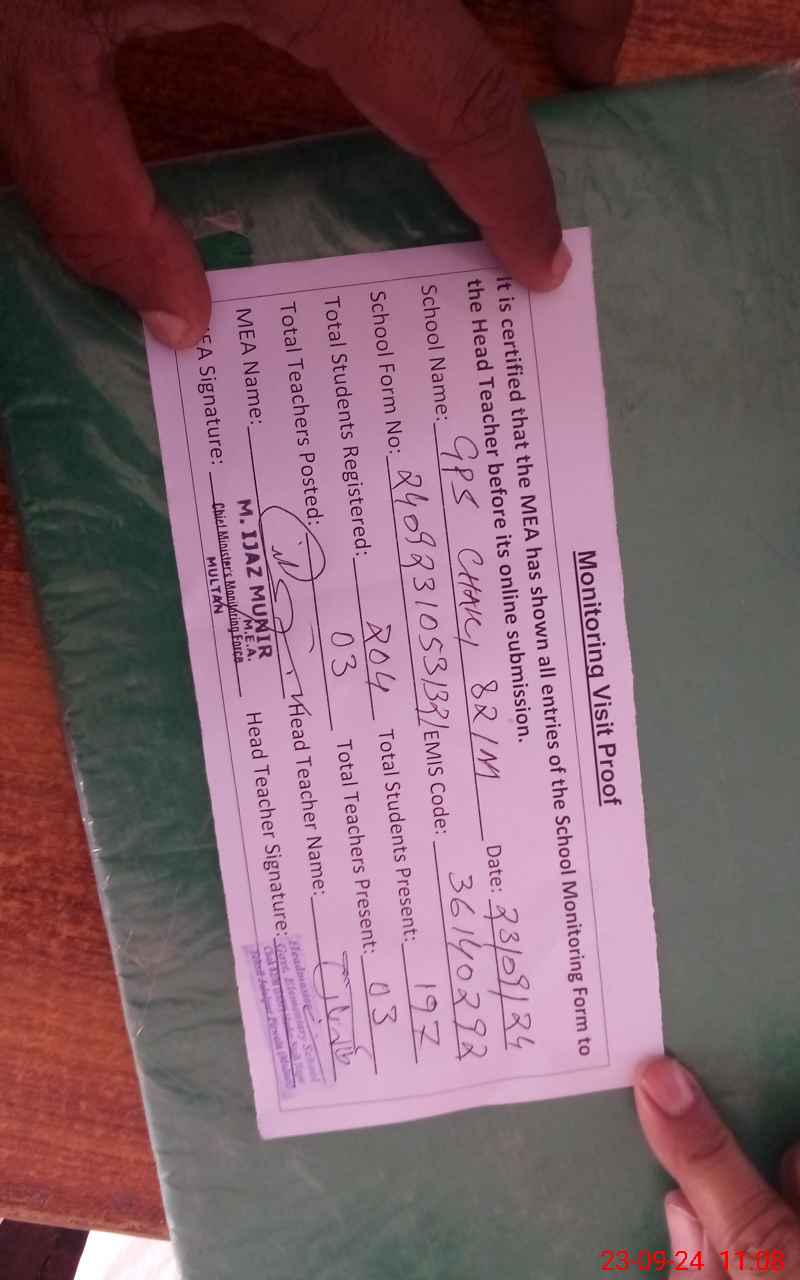 Monitoring Visit Proof
It is certified that the MEA has shown all entries of the School Monitoring Form to
the Head Teacher before its online submission.
School Name: GPS CHAK, 82/M Date: 23/09/24
School Form No: EMIS Code: 36140292
Total Students Registered: 204 Total Students Present: 197
Total Teachers Posted: 03 Total Teachers Present: 03
MEA Name: Head Teacher Name:
MEA Signature: Head Teacher Signature:
M. IJAZ MUNIR
M.E.A.
Chief Ministers Monitoring Force
MULTAN
Headmaster
Govt. Elementary School
23-09-24 11:08